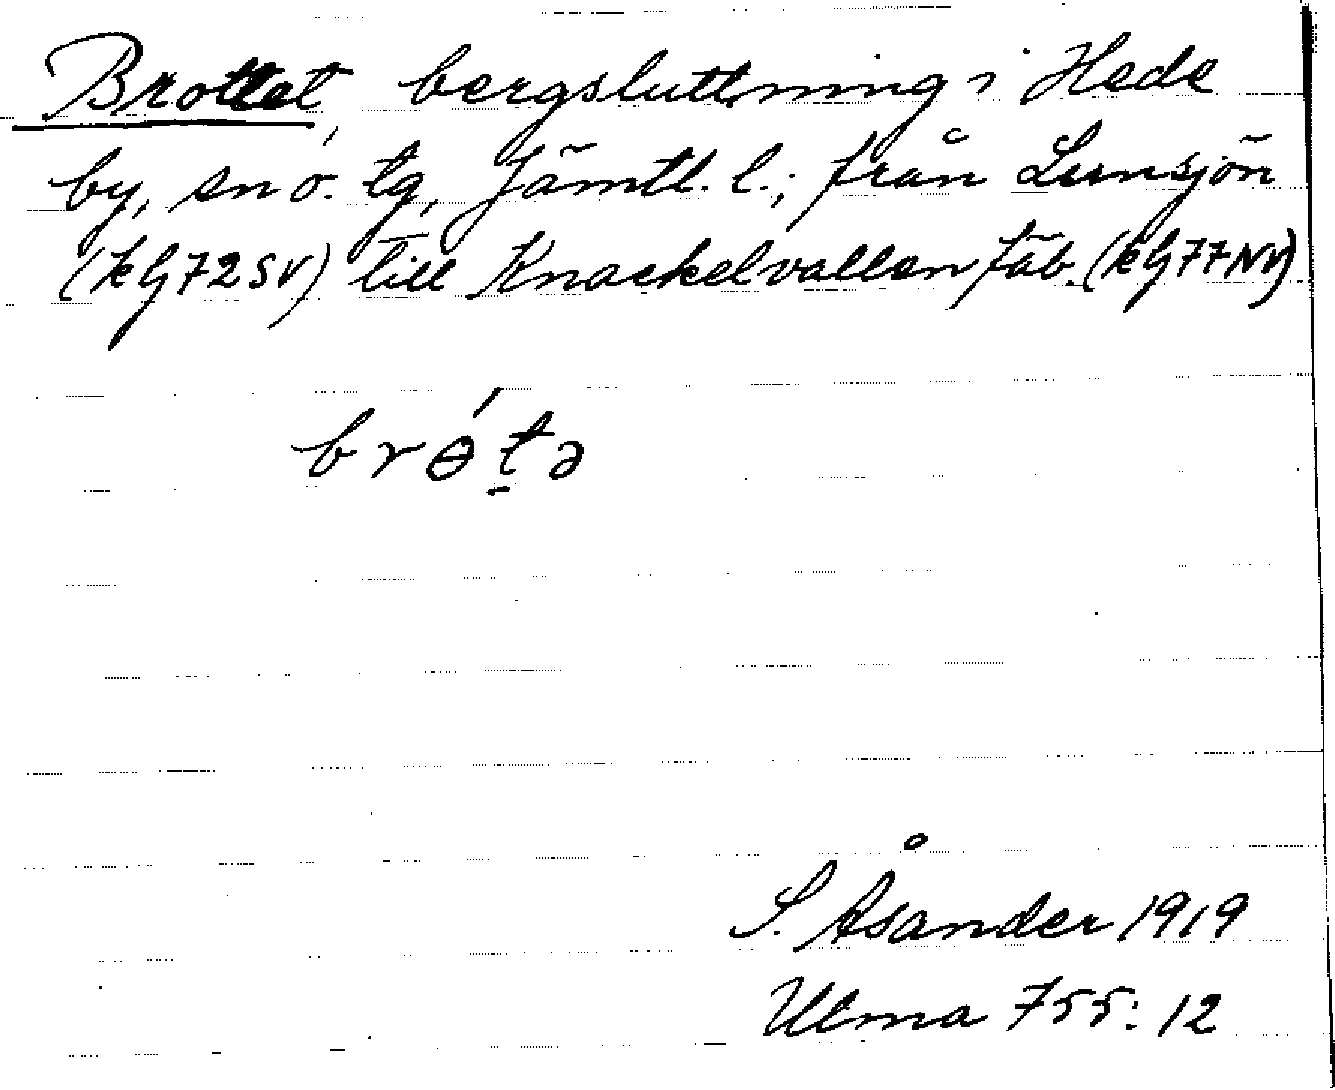 Brottet, bergsluttning i Hede
by, sn o. tg, Jämtl. l.; från Lunsjön
(kG72SV) till Knackelvallen fäb. (kG77NV)
brɵ́tə
S. Åsander 1919
Ulma 755:12